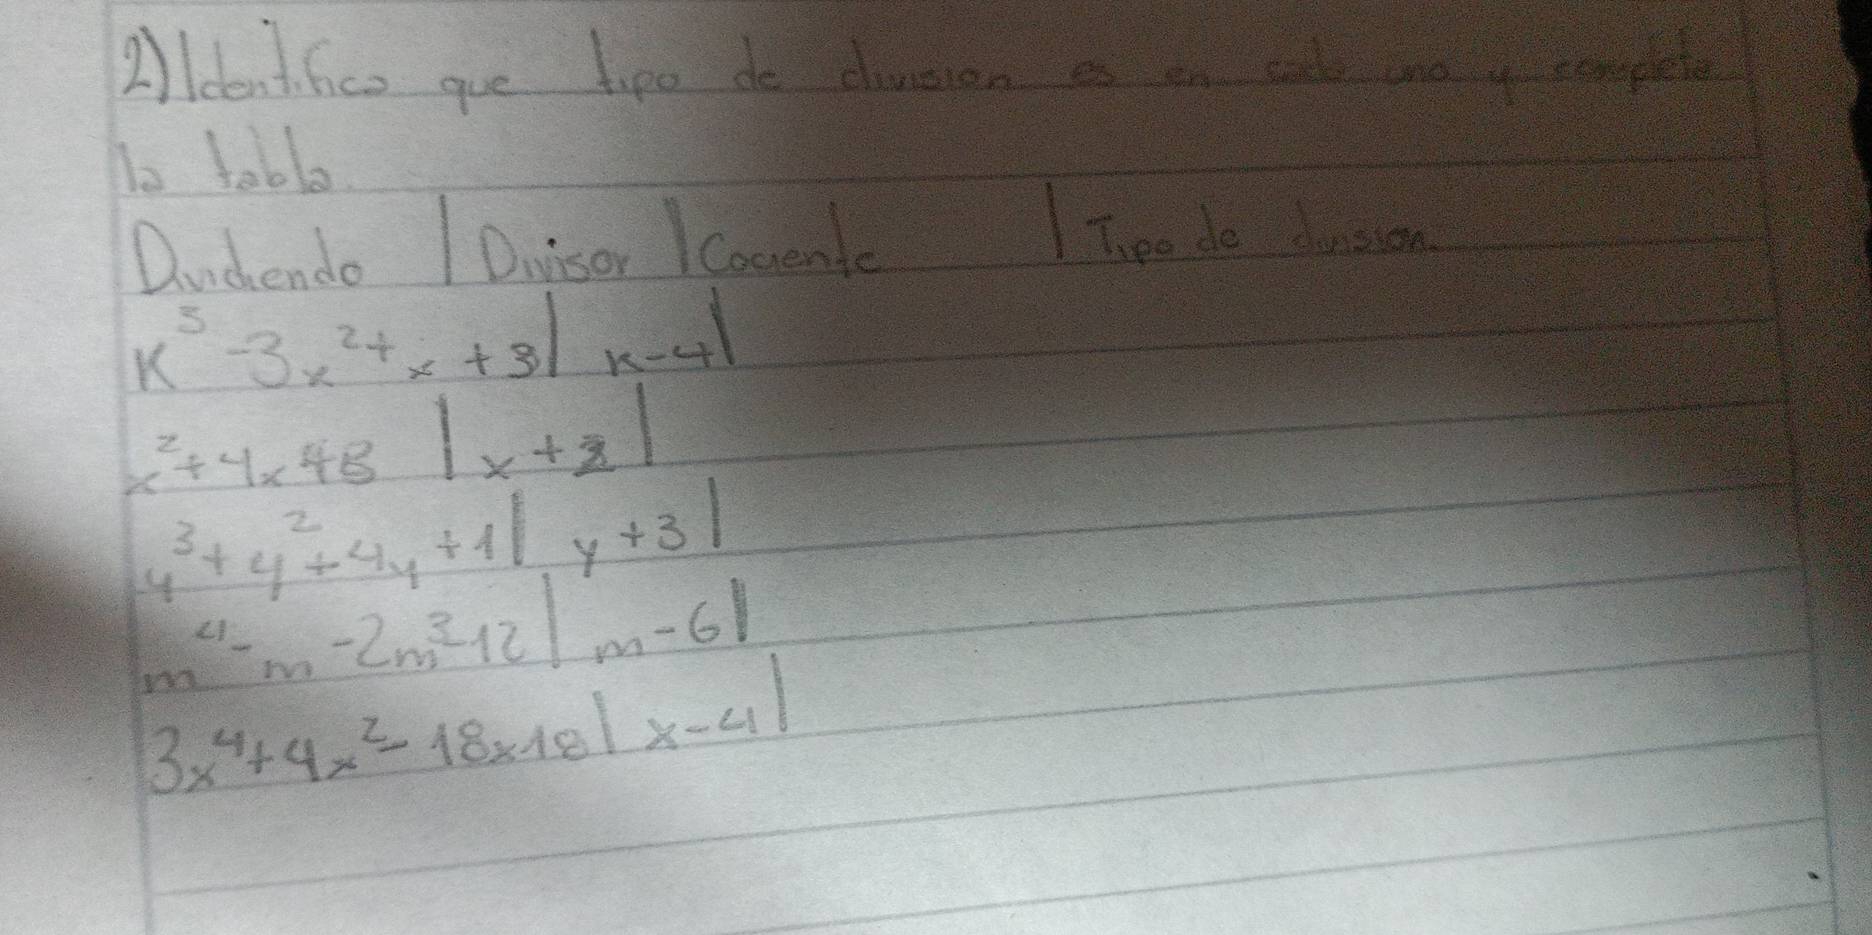 2) Identifico que tipo de division es en cada uno y complete
la tabla.
Dividiendo | Divisor | Cociente | Tipo de division.
K³ - 3x² + x + 3 | x - 4 |
x² + 4x + 8 | x + 2 |
y³ + y² + 4y + 1 | y + 3 |
m⁴ - m - 2m³ - 12 | m - 6 |
3x⁴ + 4x² - 18x 18 | x - 4 |